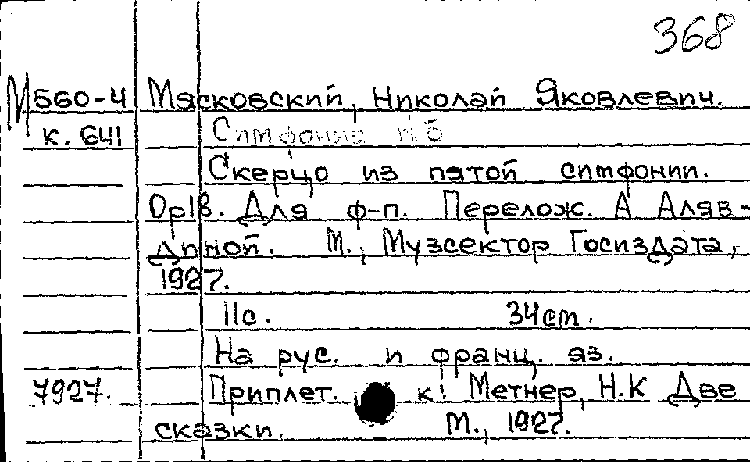 368
М560-4 Мясковский, Николай Яковлевич.
к. 641 Симфония №5
Скерцо из пятой симфонии.
Op. 18. Для ф-п. Перелож. А Аляв-
диной. М., Музсектор Госиздата,
1927.
11с. 34см.
На рус. и франц. яз.
7927. Приплет. к: Метнер, Н.К Две
сказки. М., 1927.